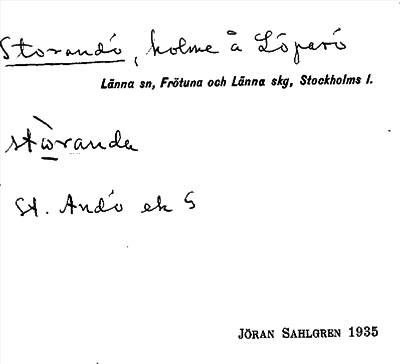 Storandö, holme å Löparö
Länna sn, Frötuna och Länna skg, Stockholms l.
stòranda
St. Andö ek 5
JÖRAN SAHLGREN 1935